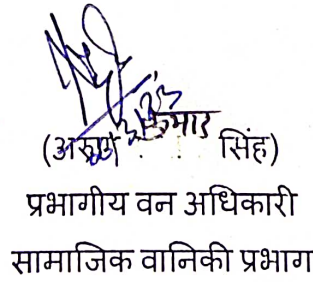 (अरूण कुमार सिंह)
प्रभागीय वन अधिकारी
सामाजिक वानिकी प्रभाग